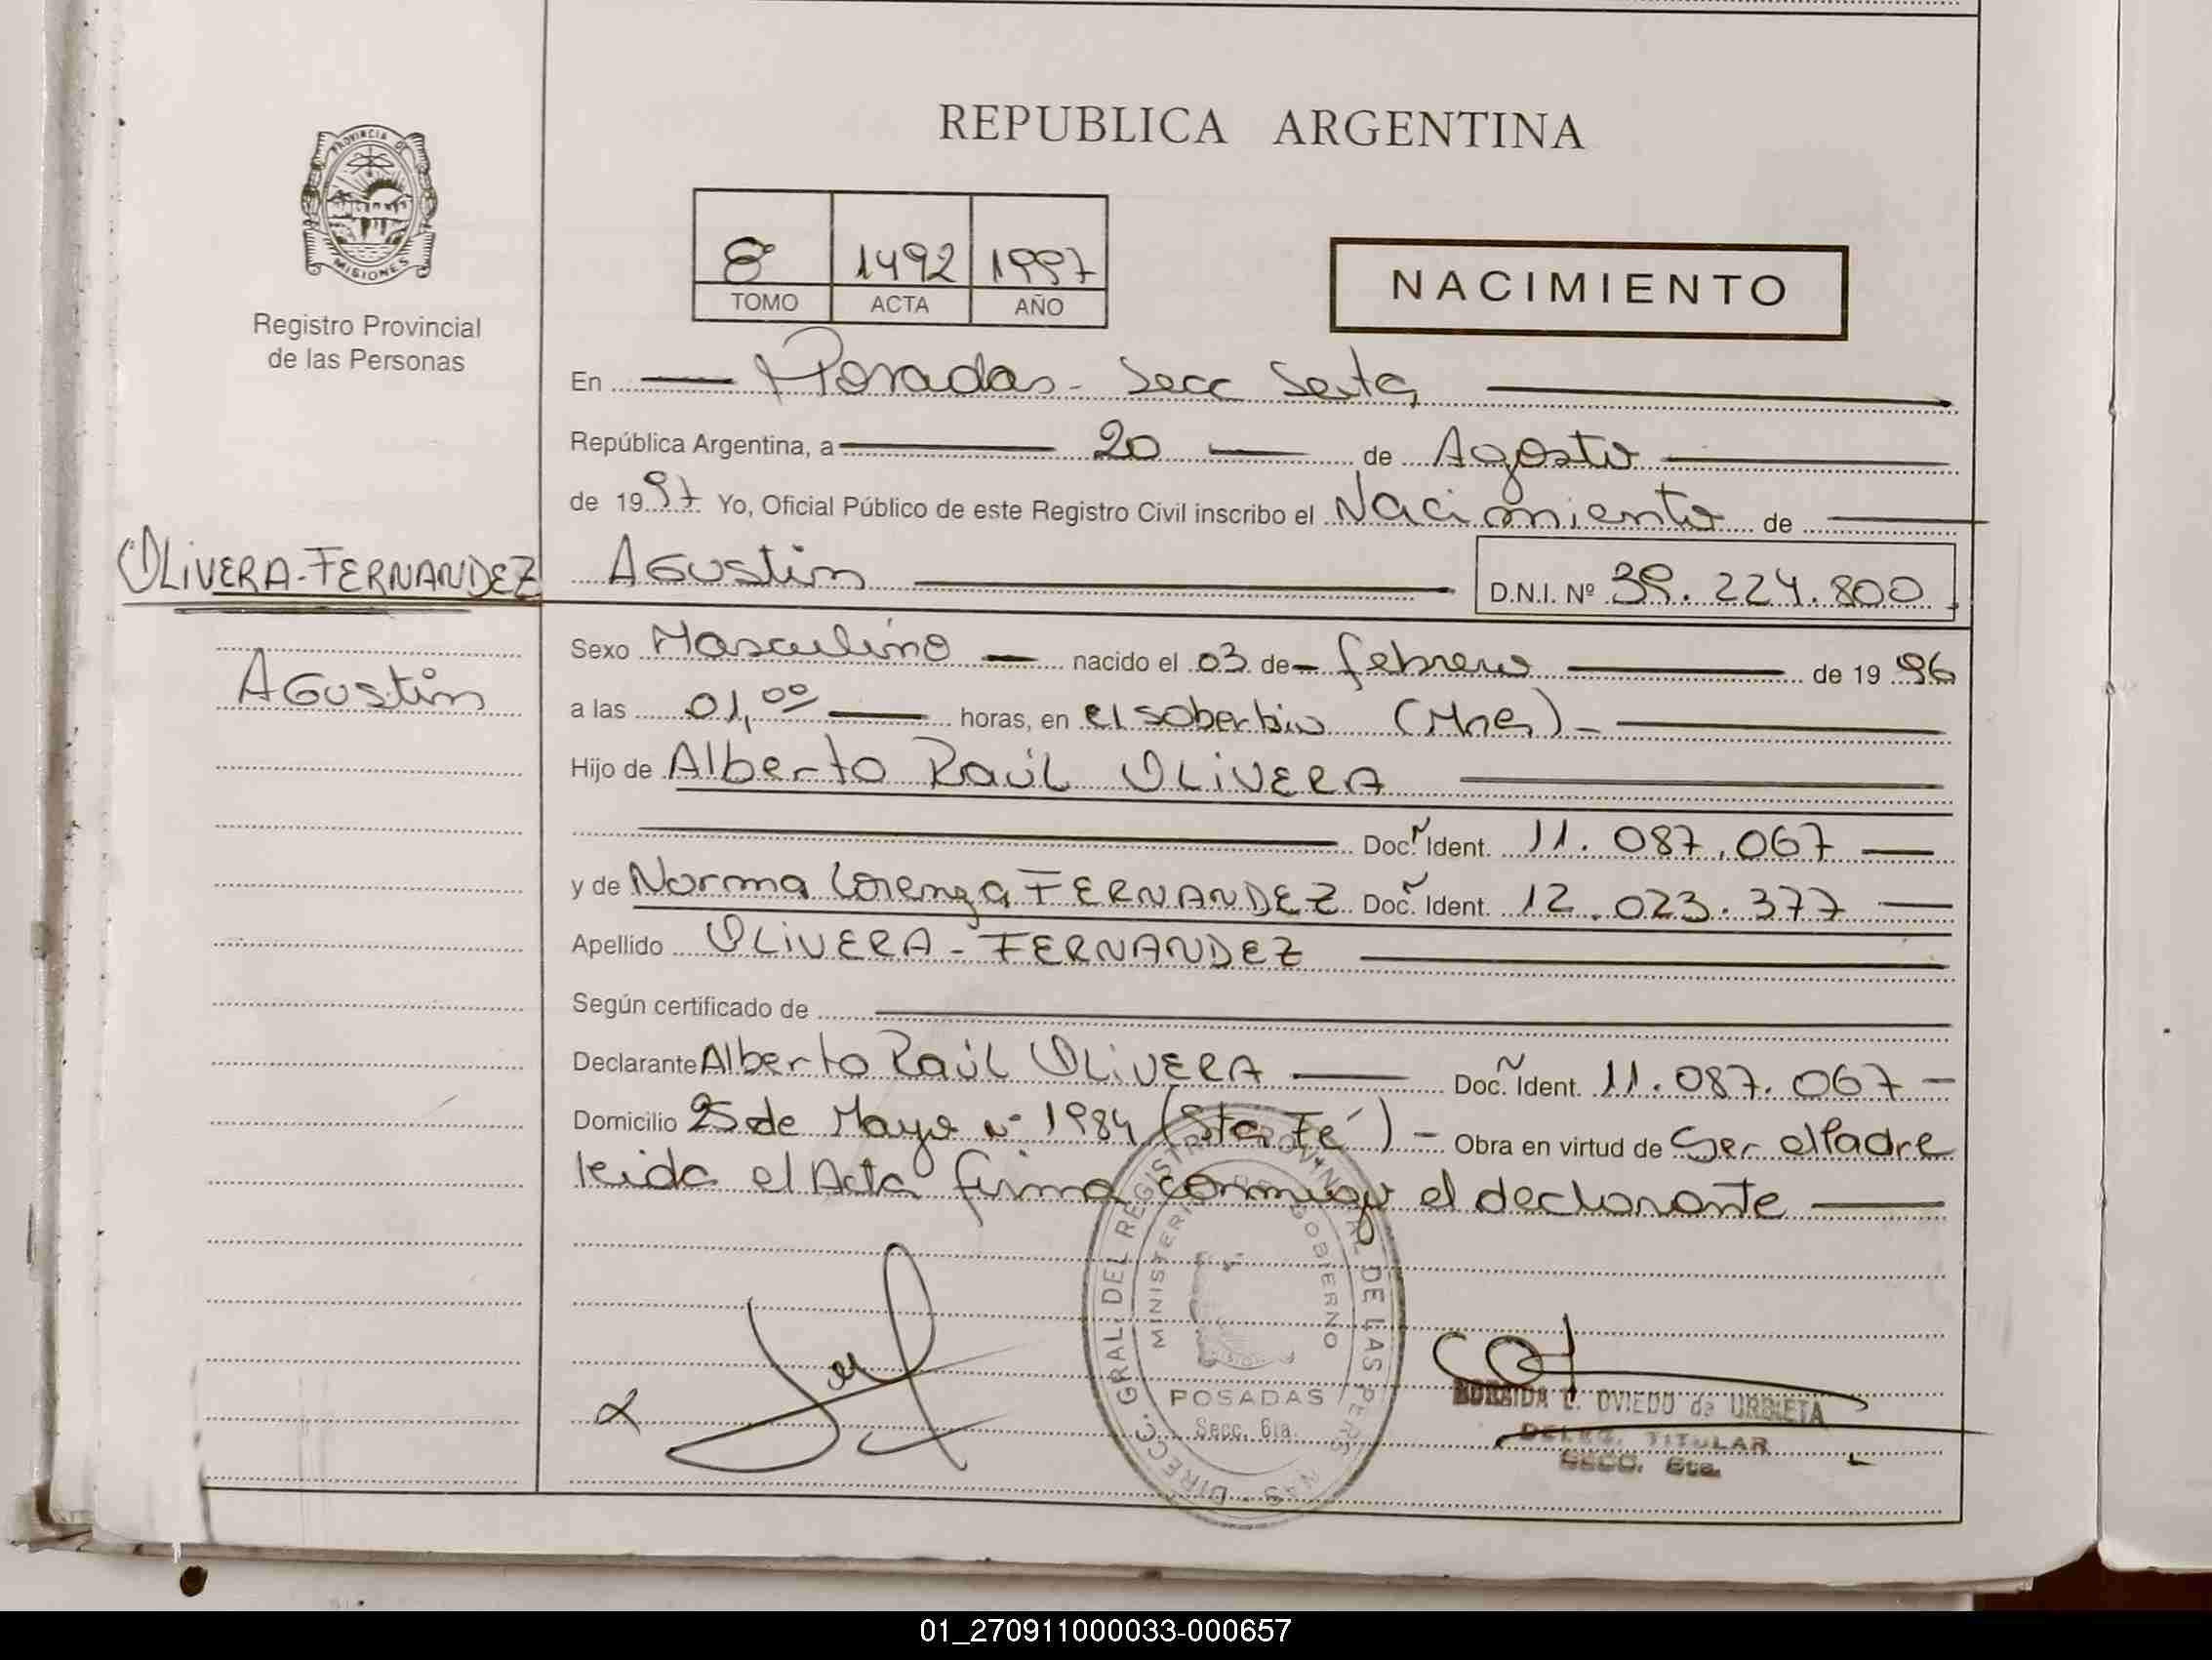 REPUBLICA ARGENTINA
PROVINCIA DE MISIONES
Registro Provincial
de las Personas
8 1492 1997
TOMO ACTA AÑO
NACIMIENTO
En Posadas - Secc Sexta
República Argentina, a 20 de Agosto
de 1997 Yo, Oficial Público de este Registro Civil inscribo el Nacimiento de
OLIVERA-FERNANDEZ
Agustin
Agustin D.N.I. Nº 39.224.800
Sexo Masculino nacido el 03 de febrero de 1996
a las 01,00 horas, en el soberbio (Mnes) -
Hijo de Alberto Raúl OLIVERA
Doc. Ident. 11.087.067
y de Norma Lorenza FERNANDEZ Doc. Ident. 12.023.377
Apellido OLIVERA - FERNANDEZ
Según certificado de
Declarante Alberto Raúl OLIVERA Doc. Ident. 11.087.067 -
Domicilio 25 de Mayo Nº 1984 (Sta Fé) - Obra en virtud de Ser el Padre
leida el Acta firma conmigo el declarante
DIRECC. GRAL. DEL REGISTRO PROVINCIAL DE LAS PERSONAS
MINISTERIO DE GOBIERNO
POSADAS
Secc. 6ta.
L. OVIEDO de URBIETA
DELEG. TITULAR
SECC. 6ta.
01_270911000033-000657